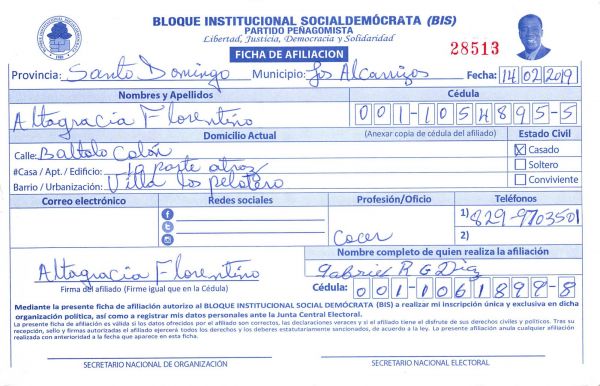 BLOQUE INSTITUCIONAL SOCIALDEMÓCRATA (BIS)
PARTIDO PEÑAGOMISTA
Libertad, Justicia, Democracia y Solidaridad
FICHA DE AFILIACION
28513
Provincia: Santo Domingo Municipio: Los Alcarrizos Fecha: 14/02/2019
Nombres y Apellidos Cédula
Altagracia Florentino 001-1054895-5
Domicilio Actual (Anexar copia de cédula del afiliado) Estado Civil
Calle: Baltolo Colón Casado
#Casa / Apt. / Edificio: 19 parte atras Soltero
Barrio / Urbanización: Villa los pelotero Conviviente
Correo electrónico Redes sociales Profesión/Oficio Teléfonos
1) 829-9703501
Cocer 2)
Nombre completo de quien realiza la afiliación
Altagracia Florentino Gabriel R G Díaz
Firma del afiliado (Firme igual que en la Cédula) Cédula: 001-1061898-8
Mediante la presente ficha de afiliación autorizo al BLOQUE INSTITUCIONAL SOCIAL DEMÓCRATA (BIS) a realizar mi inscripción única y exclusiva en dicha
organización política, así como a registrar mis datos personales ante la Junta Central Electoral.
La presente ficha de afiliación es válida si los datos ofrecidos por el afiliado son correctos, las declaraciones veraces y si el afiliado tiene el disfrute de sus derechos civiles y políticos. Tras su
recepción, sello y firmas autorizadas el afiliado ejercerá todos los derechos y los deberes estatutariamente sancionados, de acuerdo a la ley. La presente afiliación anula cualquier afiliación
realizada con anterioridad a la fecha que aparece en esta ficha.
SECRETARIO NACIONAL DE ORGANIZACIÓN SECRETARIO NACIONAL ELECTORAL